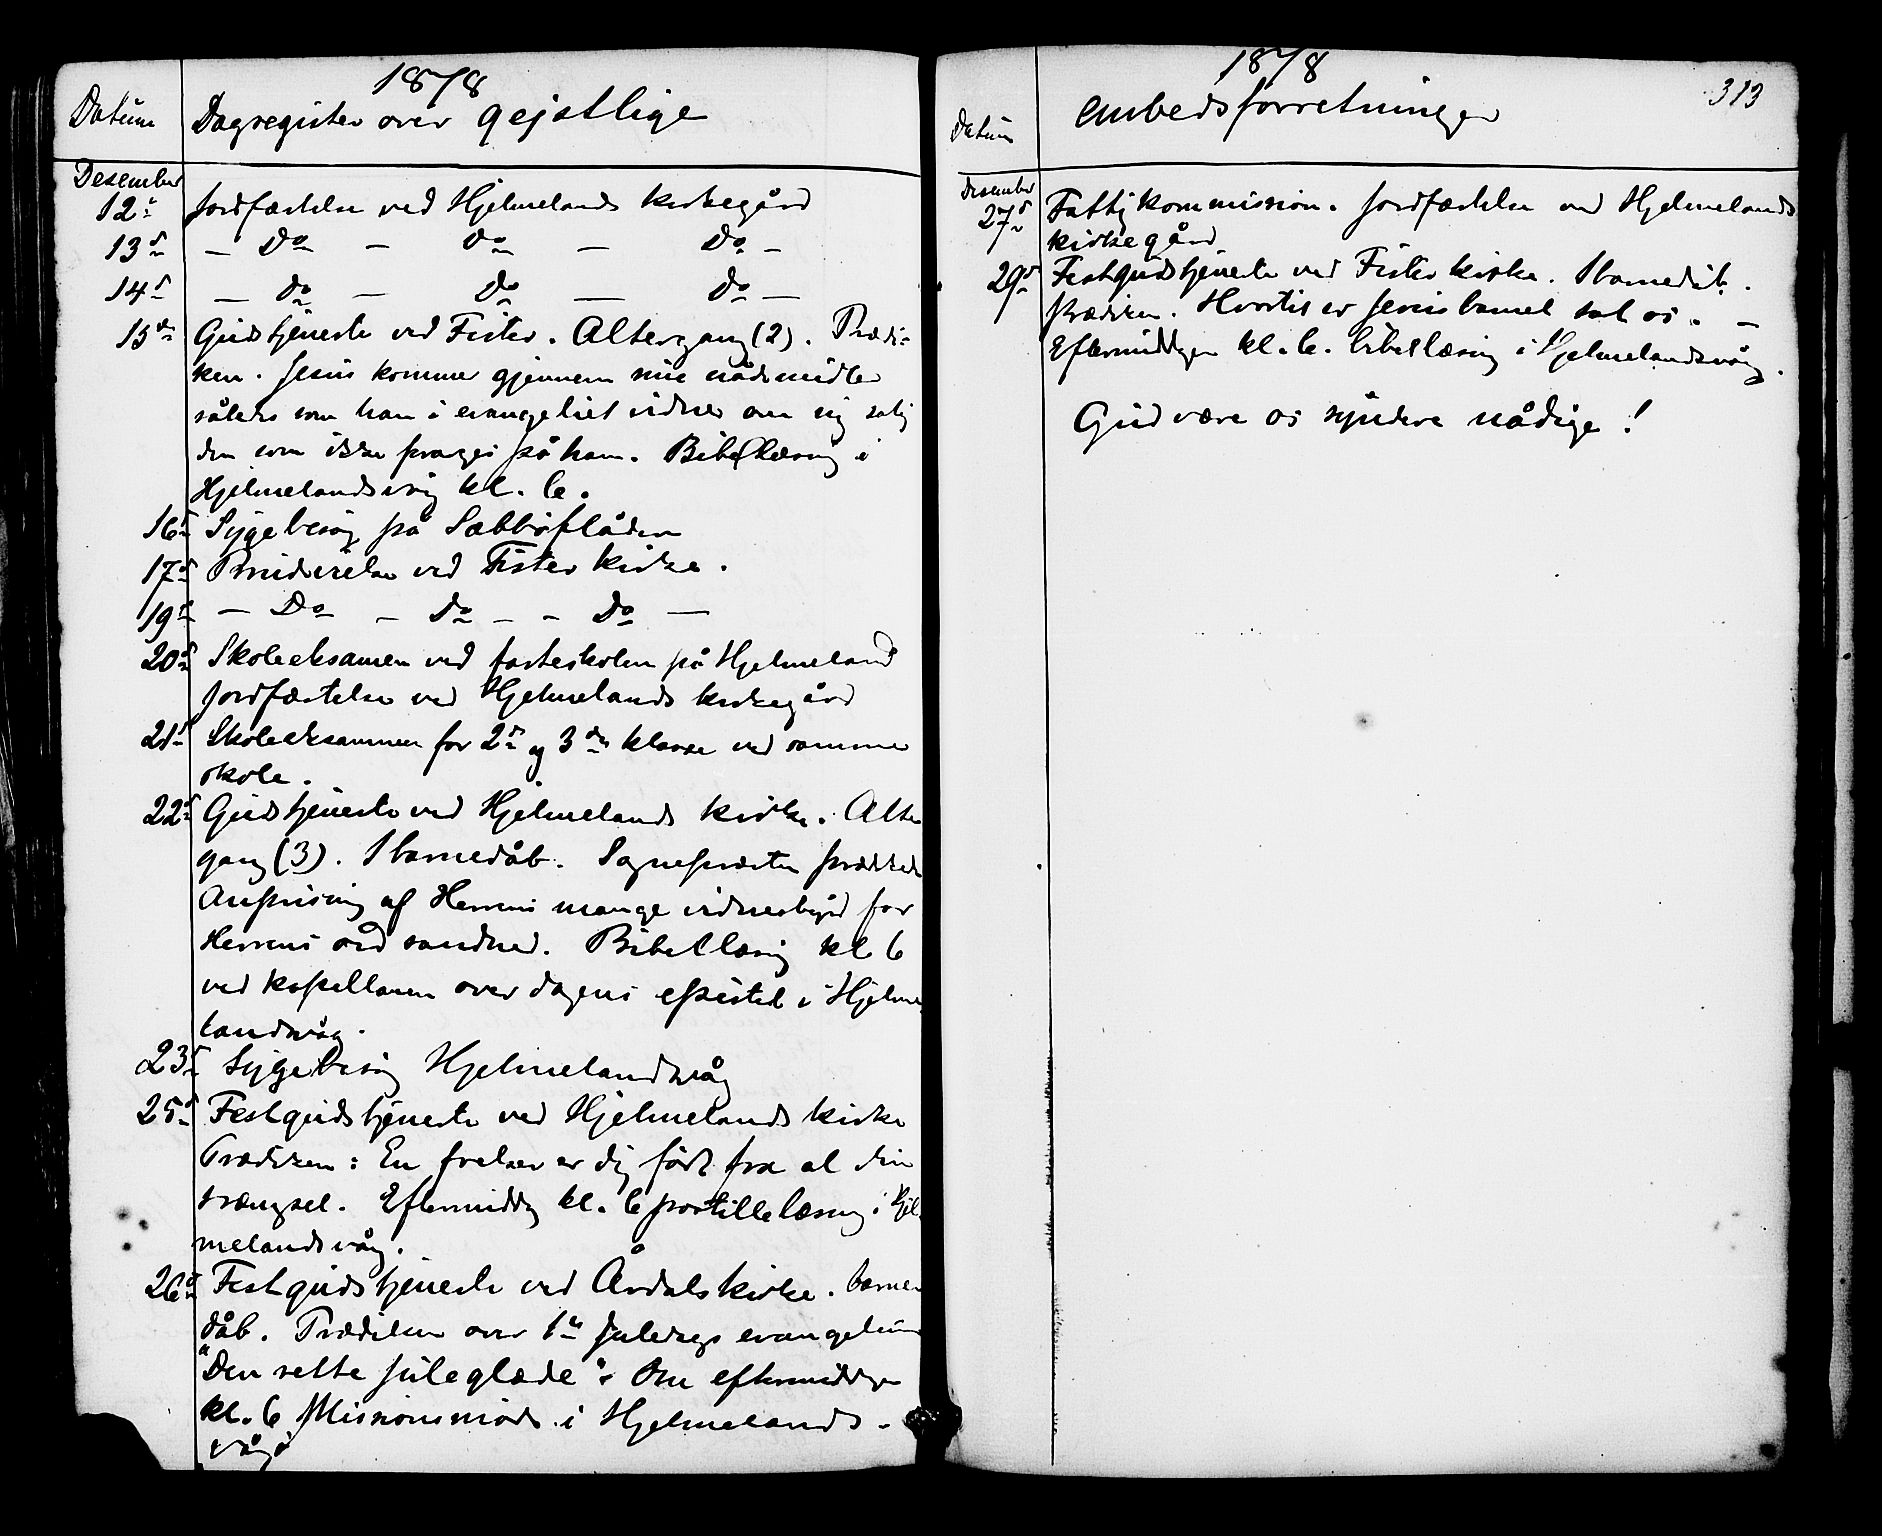 1878
Datum Dagregister over gejstlige
Desember
12te Jordfæstelse ved Hjelmelands kirkegård
13de — Do — Do — Do —
14de — do — do — do —
15de Gudstjeneste ved Fister. Altergang (2). Prædi-
ken. Jesus kommer gjennem sine nådemidler
således som han i evangeliet vidner om sig salig
den som ikke forarges på ham. Bibellæsning i
Hjelmelandsvåg kl. 6.
16de Sygebesøg på Sæbbøflåden
17de Brudevielse ved Fister kirke.
19de — Do — do — — Do —
20de Skoleeksamen ved fasteskolen på Hjelmeland
Jordfæstelse ved Hjelmelands kirkegård
21de Skoleeksammen for 2den og 3die klasse ved samme
skole.
22de Gudstjeneste ved Hjelmelands kirke. Alter
gang (3). 1 barnedåb. Sognepresten prædikede
Anprisning af Herrens mange vidnesbyrd for
Herrens ord sandhed. Bibellæsnig kl 6
ved kapellanen over dagens epistel i Hjelme
landsvåg.
23de Sygebesøg Hjelmelandsvåg
25de Festgudstjeneste ved Hjelmelands kirke
Prædiken: En frelser er dig født fra al din
trængsel. Eftermiddag kl. 6 postillelæsning i Hjel
melandsvåg.
26de Festgudstjeneste ved Årdals kirke. barne
dåb. Prædiken over 1ste Juledags evangelium
"Den rette juleglæde". Om eftermiddagen
kl. 6 Missionsmøde i Hjelmelands-
våg
1878
313
Datum embedsforretninger
Desember
27de Fattigkommission. Jordfæstelse ved Hjelmelands
kirkegård
29de Festgudstjeneste ved Fister kirke. 1 barnedåb.
Prædiken. Hvortil er Jesusbarnet sat os. —
Eftermiddagen kl. 6. bibellæsnig i Hjelmelandsvåg.
Gud være os syndere nådige!